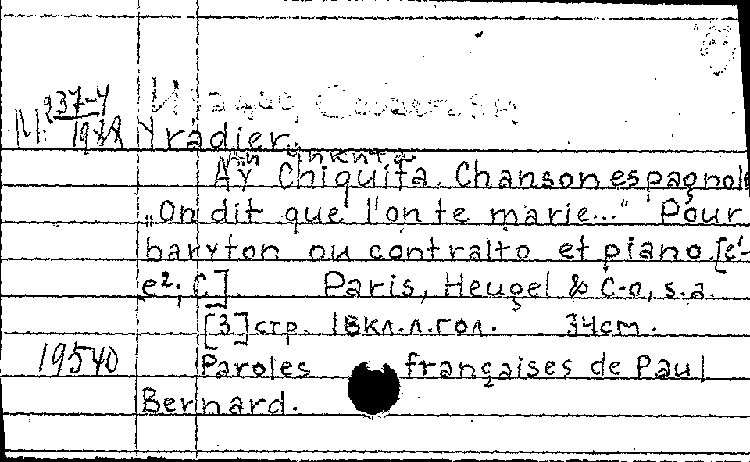 237-4
1988
Yradier.
Ау Чикита
Ay Chiquita. Chanson espagnole
„On dit que l'on te marie..." Pour
baryton ou contralto et piano. [e¹-
e²; C]   Paris, Heugel & C-o, s.a.
[3] стр. 1 вкл.л. гол.   34 cm.
19540 Paroles françaises de Paul
Bernard.